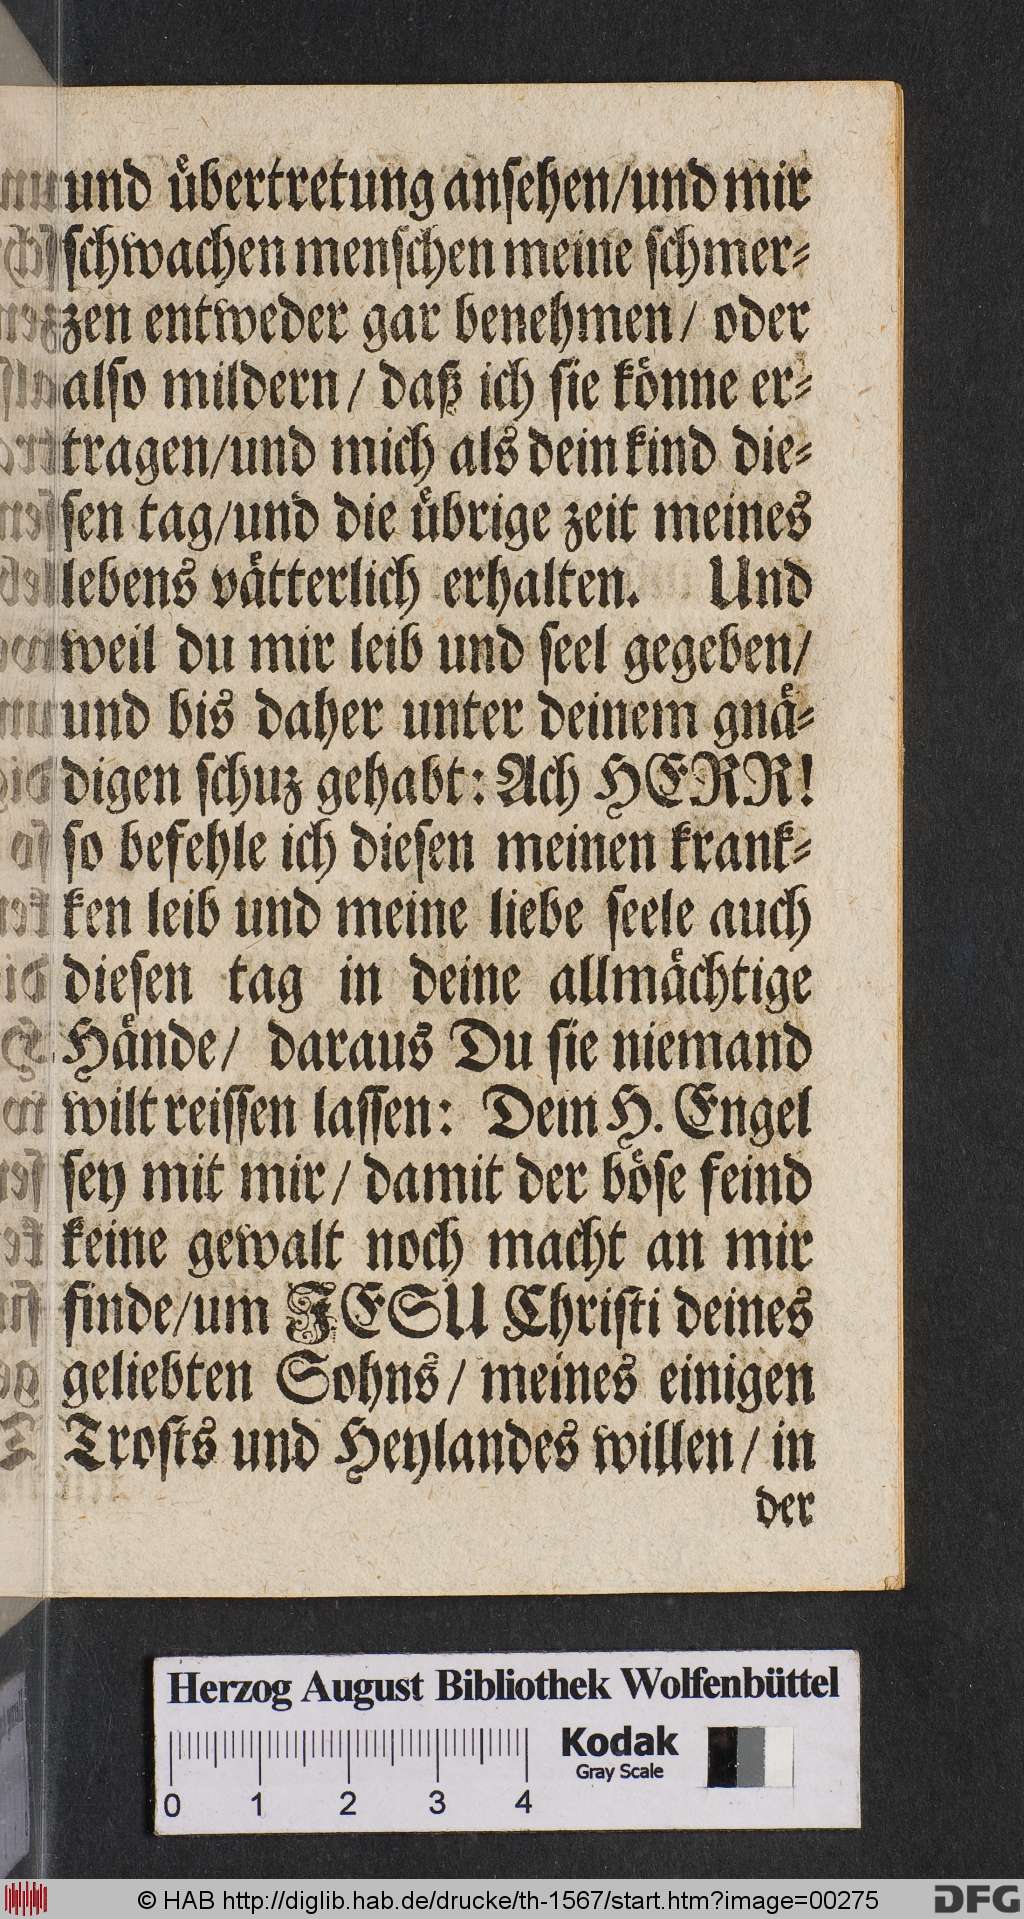 und uͤbertretung anſehen/und mir
ſchwachen menſchen meine ſchmer⸗
zen entweder gar benehmen/ oder
alſo mildern/ daß ich ſie koͤnne er⸗
tragen/und mich als dein kind die⸗
ſen tag/und die uͤbrige zeit meines
lebens vaͤtterlich erhalten. Und
weil du mir leib und ſeel gegeben/
und bis daher unter deinem gnaͤ⸗
digen ſchuz gehabt: Ach HERR!
ſo befehle ich dieſen meinen krank⸗
ken leib und meine liebe ſeele auch
dieſen tag in deine allmaͤchtige
Haͤnde/ daraus Du ſie niemand
wilt reiſſen laſſen: Dein H. Engel
ſey mit mir/ damit der boͤſe feind
keine gewalt noch macht an mir
finde/um JESU Chriſti deines
geliebten Sohns/ meines einigen
Troſts und Heylandes willen/ in
der
Herzog August Bibliothek Wolfenbüttel
Kodak
Gray Scale
0 1 2 3 4
© HAB http://diglib.hab.de/drucke/th-1567/start.htm?image=00275
DFG